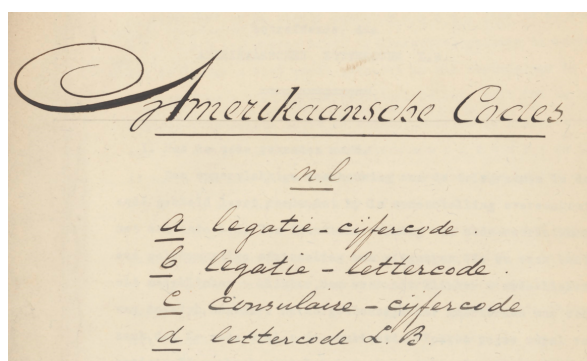 Amerikaansche Codes.
n.l.
a legatie-cijfercode.
b legatie-lettercode.
c consulaire-cijfercode
d lettercode L.B.